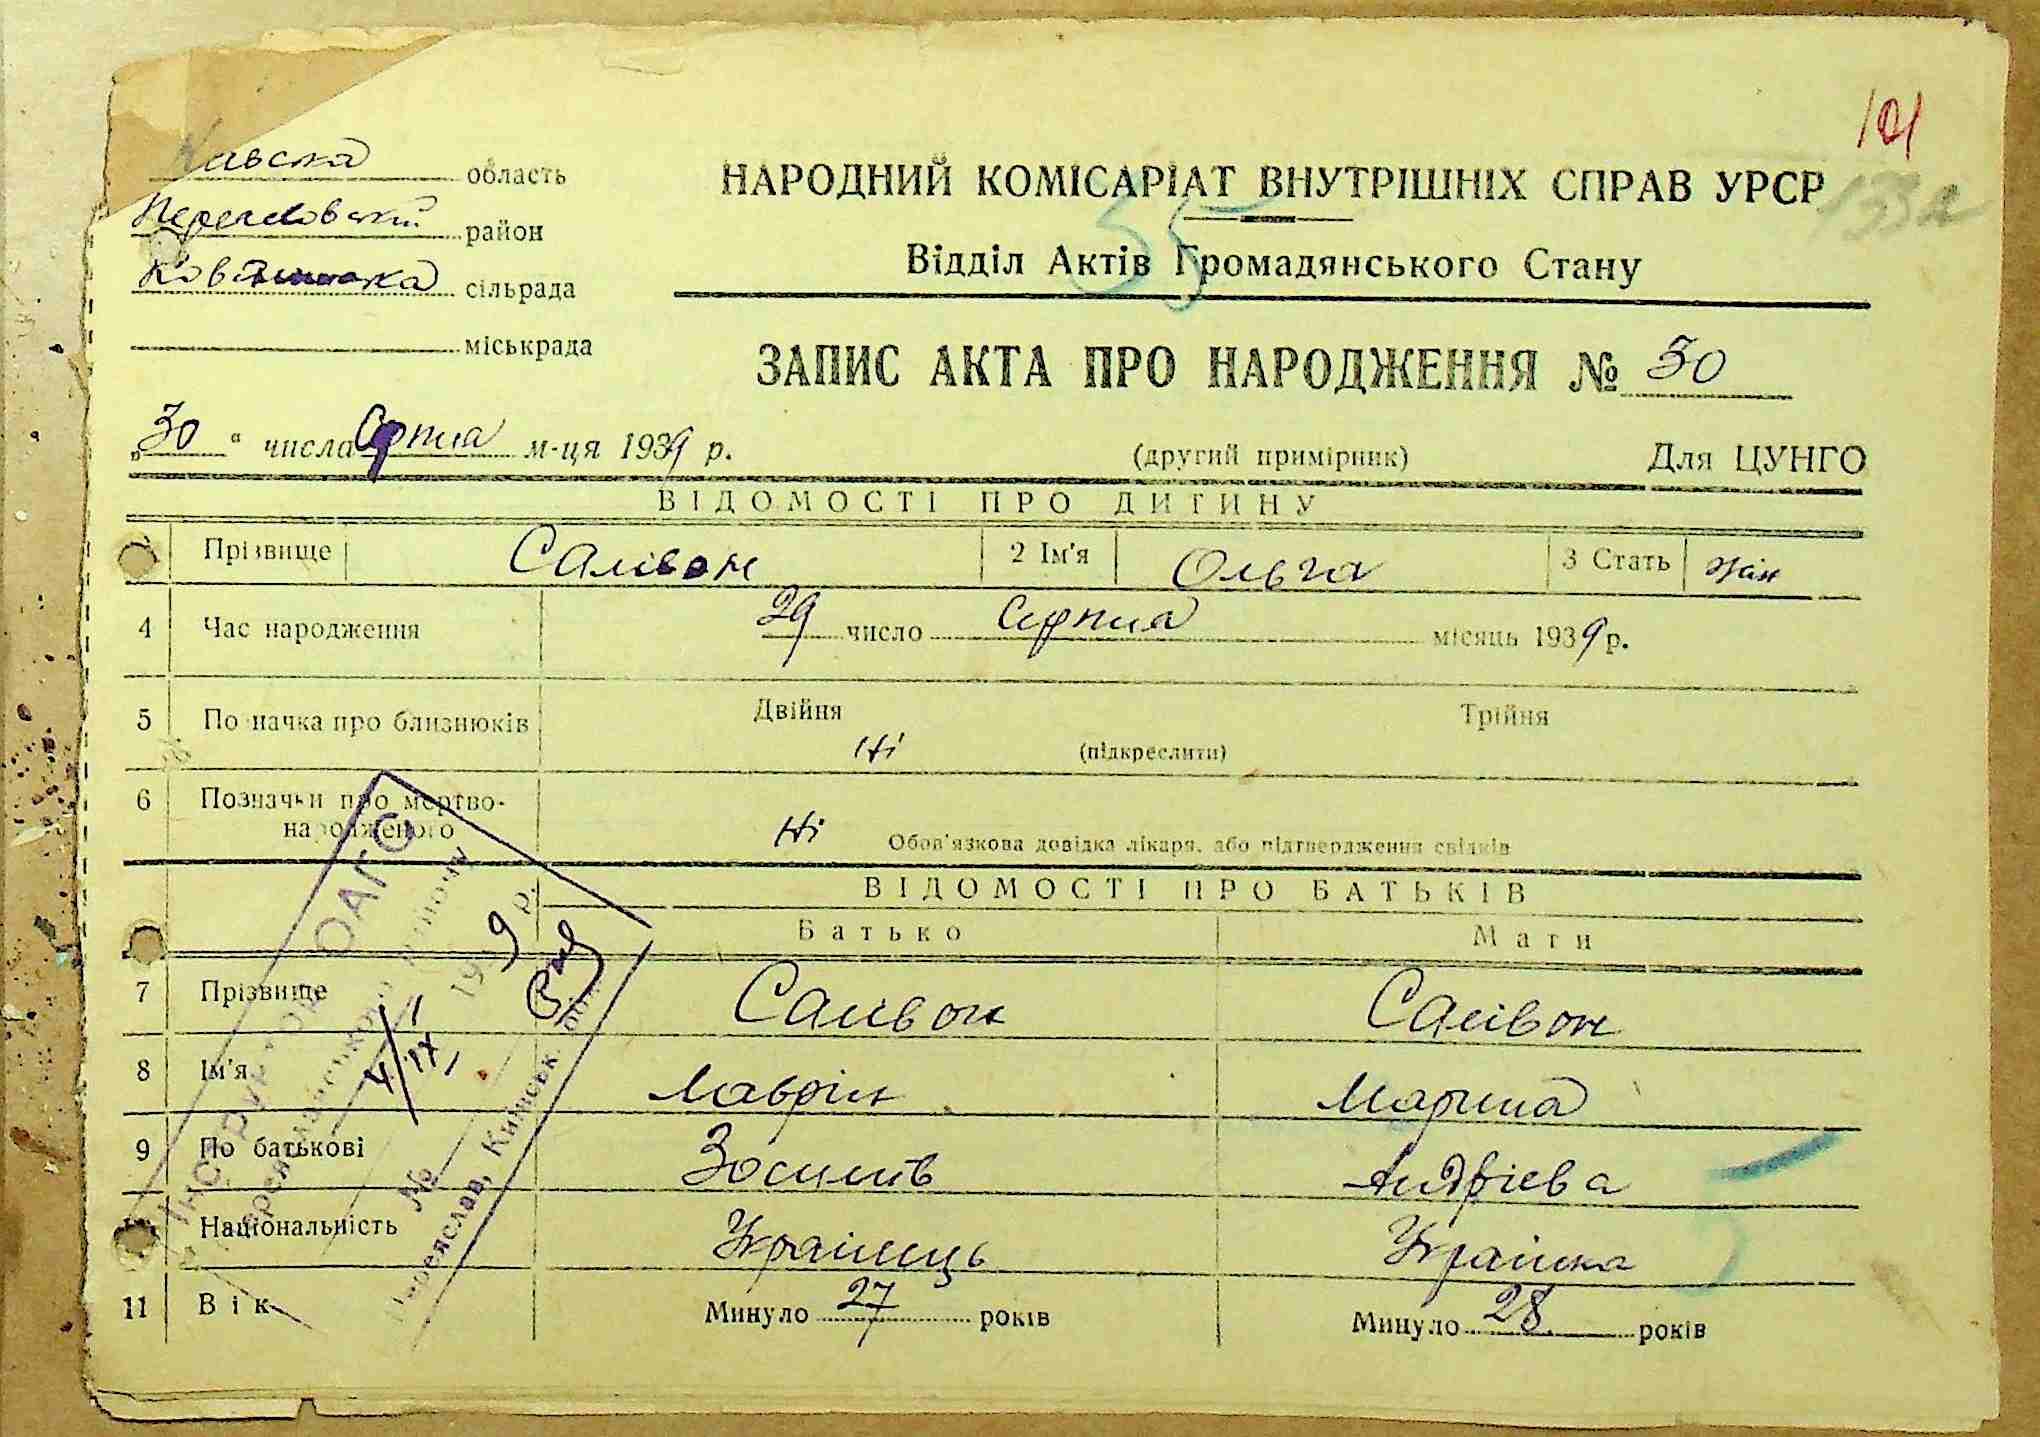 101
область
НАРОДНИЙ КОМІСАРІАТ ВНУТРІШНІХ СПРАВ УРСР
район
Відділ Актів Громадянського Стану
сільрада
міськрада
ЗАПИС АКТА ПРО НАРОДЖЕННЯ № 50
„30“ числа Серпня м-ця 1939 р.
(другий примірник) Для ЦУНГО
ВІДОМОСТІ ПРО ДИТИНУ
Прізвище Салівон 2 Ім'я Ольга 3 Стать жін
4 Час народження 29 число Серпня місяць 1939 р.
5 Позначка про близнюків Двійня Трійня
Ні (підкреслити)
6 Позначки про мертво-
народженого Ні Обов'язкова довідка лікаря, або підтвердження свідків
ВІДОМОСТІ ПРО БАТЬКІВ
Батько Мати
7 Прізвище Салівон Салівон
8 Ім'я Лаврін Марина
9 По батькові Зосимів Андрієва
Національність Українець Українка
11 Вік Минуло 27 років Минуло 28 років
Інструктор ОАГС
4/IX 1939 р.
№
Переяслав, Київськ. обл.